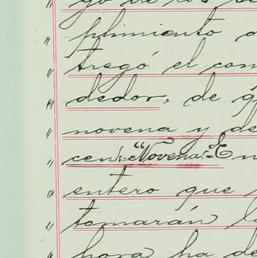 go de los
" plimiento
" tregó el con
" dedor, de
" novena y de
" cen:-"Novena"-En
" entero que
" tomarán l
" hora ha de